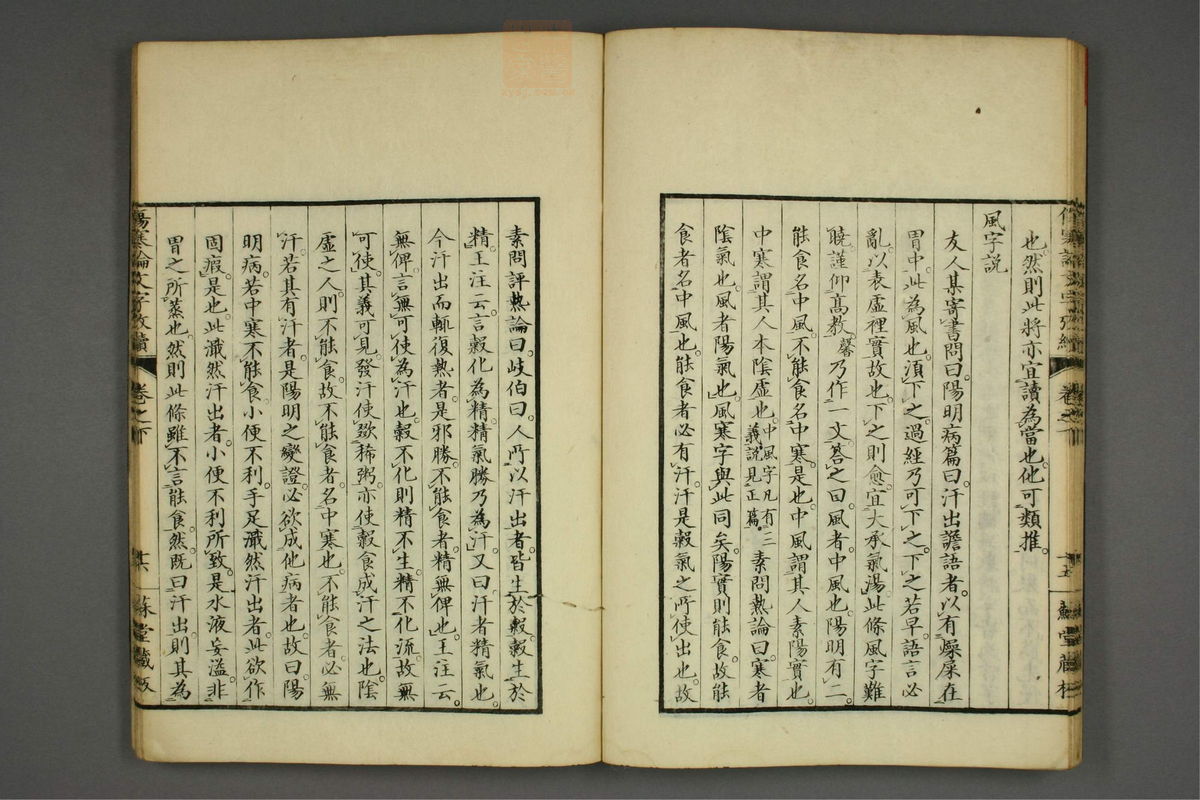 也然則此將亦宜讀為當也他可類推
風字説
友人某寄書問曰陽明病篇曰汗出譫語者以有燥屎在
胃中此為風也須下之過經乃可下之下之若早語言必
亂以表虛裡實故也下之則愈宜大承氣湯此條風字難
曉謹仰高教馨乃作一文答之曰風者中風也陽明有二
能食名中風不能食名中寒是也中風謂其人素陽實也
中寒謂其人本陰虛也中風字凡有三義説見正篇素問熱論曰寒者
陰氣也風者陽氣也風寒字與此同矣陽實則能食故能
食者名中風也能食者必有汗汗是穀氣之所使出也故
素問評熱論曰岐伯曰人所以汗出者皆生於穀穀生於
精王注云言穀化為精精氣勝乃為汗又曰汗者精氣也
今汗出而輒復熱者是邪勝不能食者精無俾也王注云
無俾言無可使為汗也穀不化則精不生精不化流故無
可使其義可見發汗使歠稀粥亦使穀食成汗之法也陰
虛之人則不能食故不能食者名中寒也不能食者必無
汗若其有汗者是陽明之變證必欲成他病者也故曰陽
明病若中寒不能食小便不利手足濈然汗出者此欲作
固瘕是也此濈然汗出者小便不利所致是水液妄溢非
胃之所蒸也然則此條雖不言能食然既曰汗出則其為
傷寒論文字攷續
卷之下
十五
傷寒論文字攷續
卷之下
十六
藏版